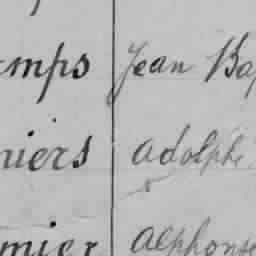 emps Jean Bap
niers Adolphe
mier Alphonse